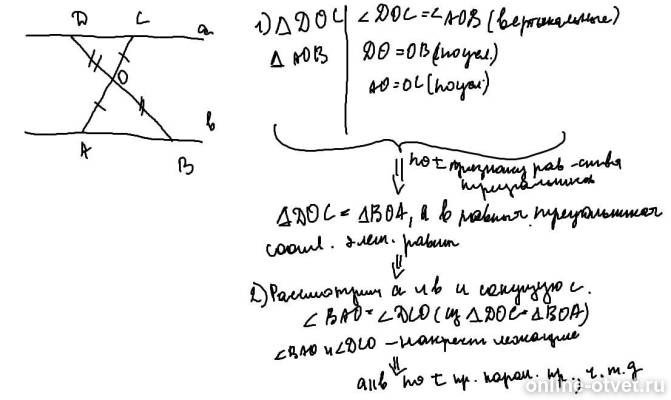 D C a
O
b
A B
1) Δ DOC ∠DOC = ∠AOB (вертикальные)
Δ AOB DO = OB (по усл.)
AO = OC (по усл.)
по I признаку рав-ства
треугольников
ΔDOC = ΔBOA, а в равных треугольниках
соотв. элем. равны
2) Рассмотрим a и b и секущую c.
∠BAO = ∠DCO (из ΔDOC = ΔBOA)
∠BAO и ∠DCO – накрест лежащие
a||b по I пр. парал. пр., ч.т.д
online-otvet.ru